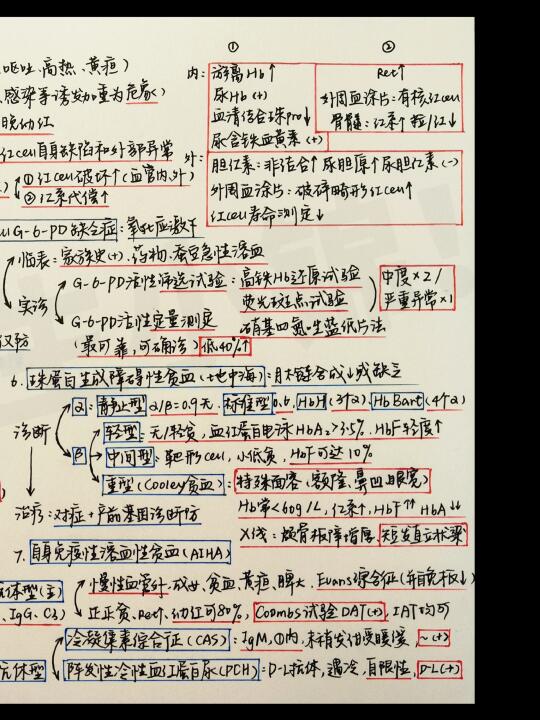 ① ②
呕吐、高热、黄疸)
感染等诱发加重为危象)
晚幼红
内: 游离Hb↑
尿Hb(+)
血清结合珠pro↓
尿含铁血黄素(+)
Ret↑
外周血涂片: 有核红cell
骨髓: 红系↑ 粒/红↓
红cell自身缺陷和外部异常
①红cell破坏↑(血管内、外)
②红系代偿↑
外: 胆红素: 非结合↑ 尿胆原↑ 尿胆红素(-)
外周血涂片: 破碎畸形红cell↑
红cell寿命测定↓
G-6-PD缺乏症: 氧化应激下
临表: 家族史(+). 药物. 蚕豆急性溶血
实诊 G-6-PD活性筛选试验: 高铁Hb还原试验
荧光斑点试验
硝基四氮唑蓝纸片法
中度×2/
严重异常×1
G-6-PD活性定量测定
(最可靠, 可确诊) 低40%↑
6. 珠蛋白生成障碍性贫血(土也中海): 肽链合成↓或缺乏
诊断 α: 静止型 α/β=0.9无. 标准型0.6. HbH(3个α). Hb Bart(4个α)
β 轻型: 无/轻贫, 血红蛋白电泳HbA₂>3.5%. HbF轻度↑
中间型: 靶形cell, 小低贫, HbF可达10%
重型(Cooley贫血): 特殊面容(额隆、鼻凹、眼宽)
Hb常<60g/L, 红系↑, HbF↑↑ HbA↓↓
X线: 颅骨板障增厚, 短发直立状梁
治疗: 对症+产前基因诊断防
7. 自身免疫性溶血性贫血(AIHA)
抗体型(主) 慢性血管外. 成女、贫血、黄疸、脾大. Evans综合征(并自免板↓)
IgG、C3) 正正贫、Ret↑、幼红可80%, Coombs试验DAT(+), IAT均可
冷凝集素综合征(CAS): IgM, ①内, 末梢发绀受暖缓, ~(+)
抗体型 阵发性冷性血红蛋白尿(PCH)=D-L抗体, 遇冷, 自限性, D-L(+)